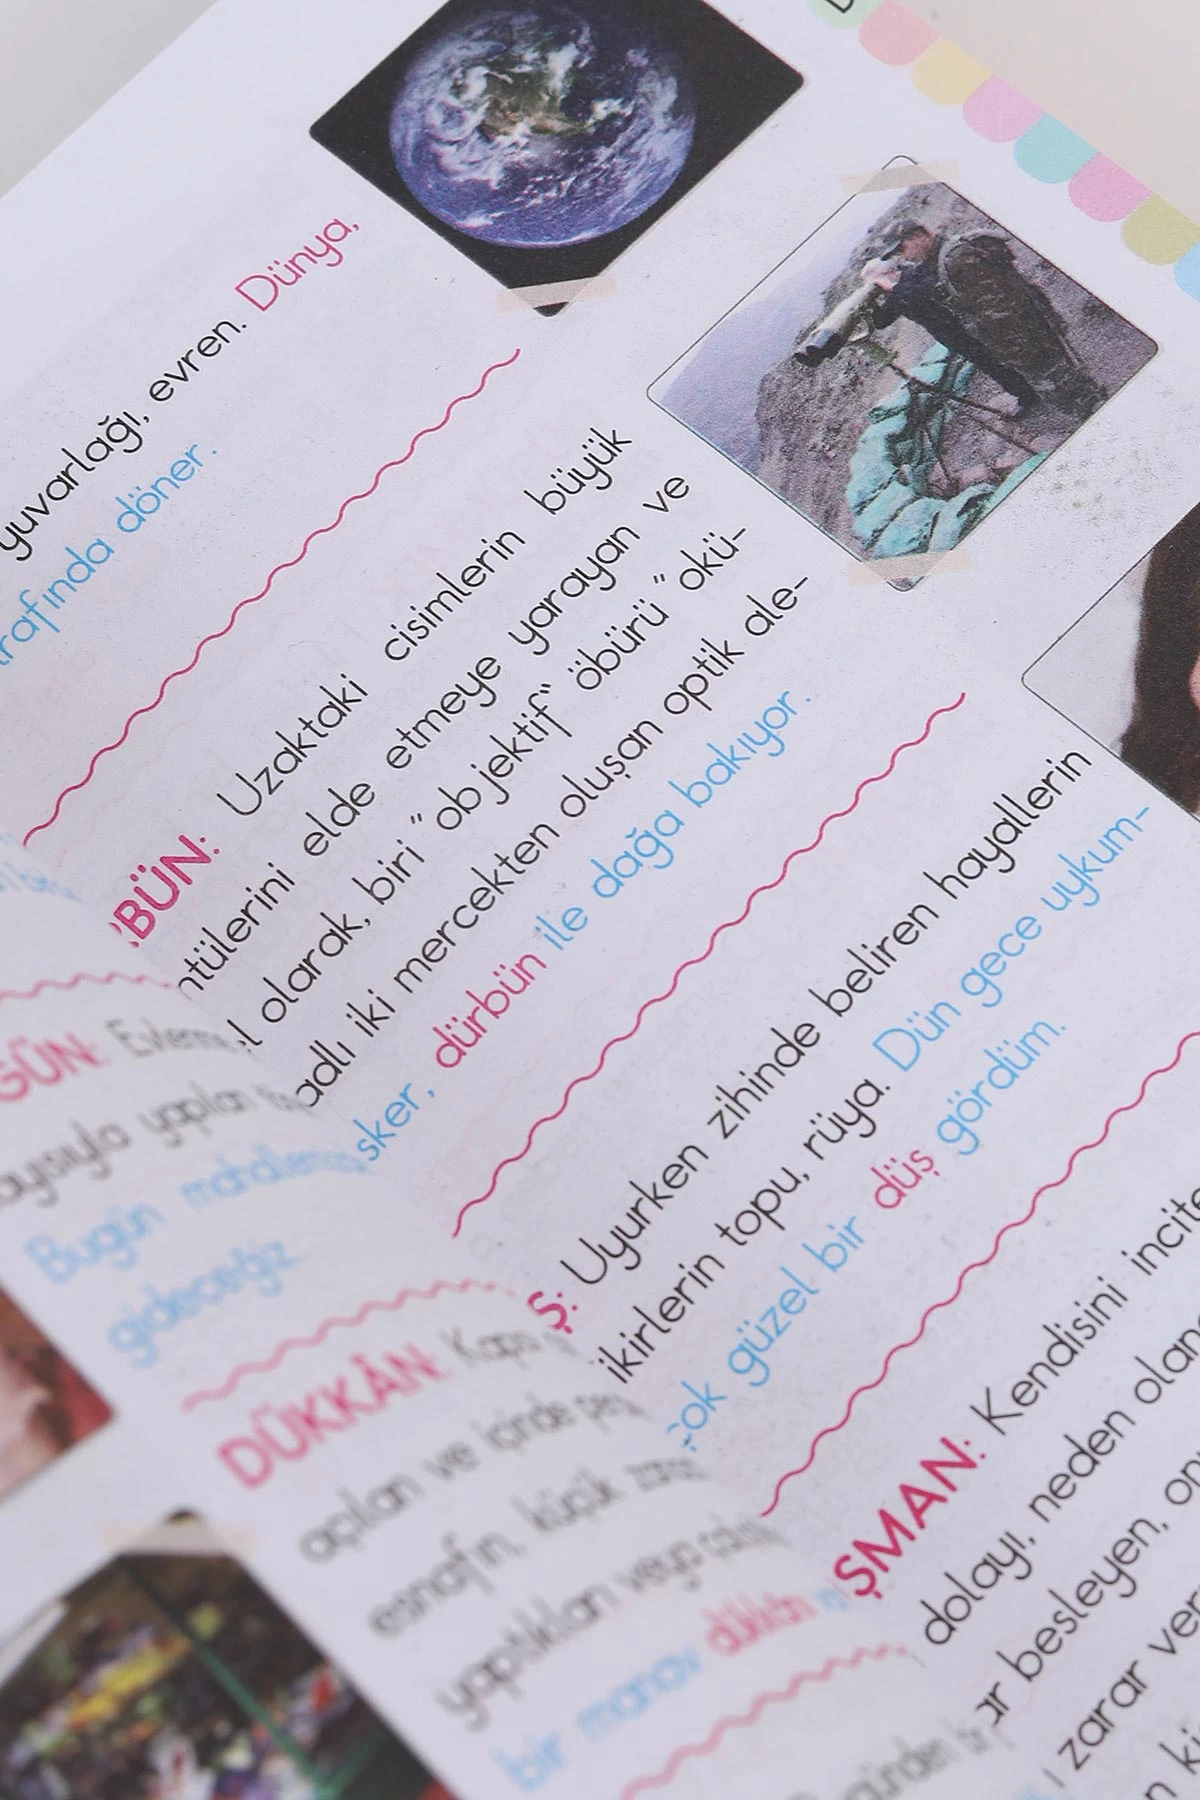 yuvarlağı, evren. Dünya,
rafında döner.
BÜN: Uzaktaki cisimlerin büyük
ntülerini elde etmeye yarayan ve
l olarak, biri "objektif" öbürü "okü-
adlı iki mercekten oluşan optik ale-
sker, dürbün ile dağa bakıyor.
Ş: Uyurken zihinde beliren hayallerin
ikirlerin topu, rüya. Dün gece uykum-
çok güzel bir düş gördüm.
ŞMAN: Kendisini incite
dolayı, neden olan
ar besleyen, on
zarar ver
n ki
ĞÜN: Evlenme
aysıyla yapılan
Bugün
gideceğiz
DÜKKÂN: Kapı
açılan ve içinde
esnafın, küçük
yaptıkları veya
bir manav dükkân